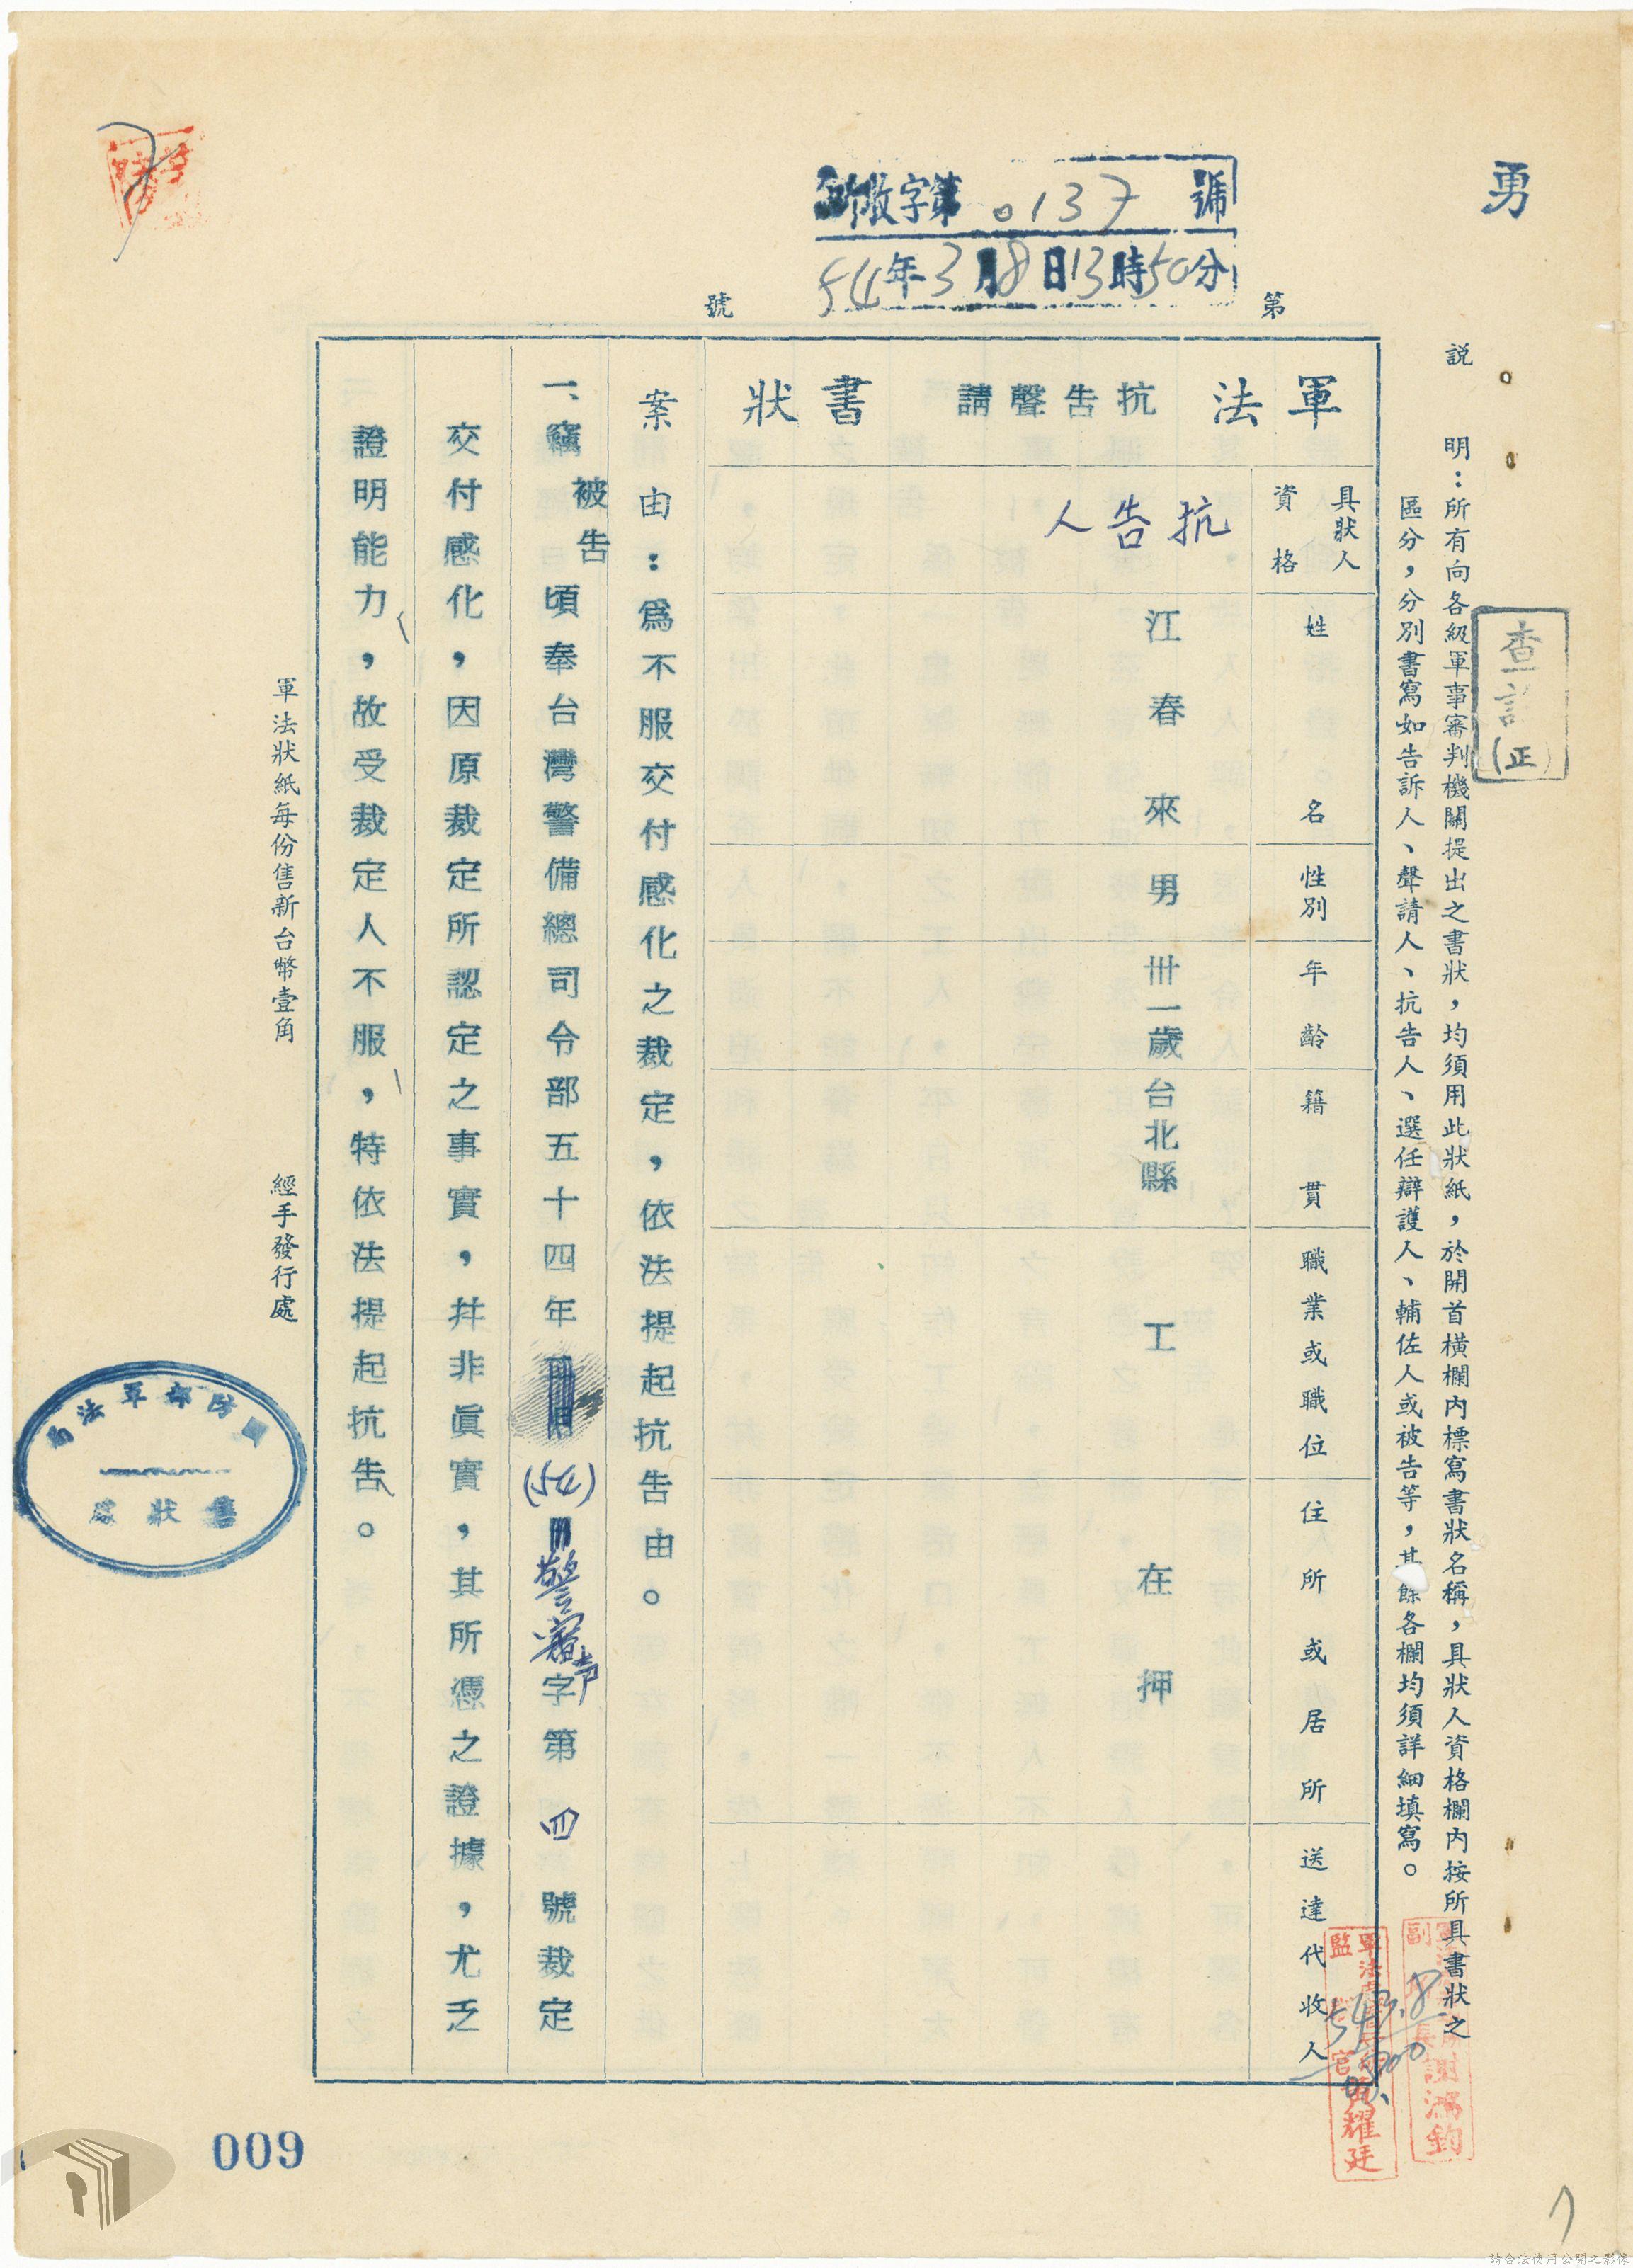 勇
字第0137號
54年3月8日13時50分
第
號
說明：所有向各級軍事審判機關提出之書狀，均須用此狀紙，於開首橫欄內標寫書狀名稱，具狀人資格欄內按所具書狀之
區分，分別書寫如告訴人、聲請人、抗告人、選任辯護人、輔佐人或被告等，其餘各欄均須詳細填寫。
查
(正)
軍法抗告聲請書狀
具狀人資格
姓名
性別
年齡
籍貫
職業或職位
住所或居所
送達代收人
抗告人
江春來
男
卅一歲
台北縣
工
在押
案由：為不服交付感化之裁定，依法提起抗告由。
一、竊被告頃奉台灣警備總司令部五十四年(54)警審声字第四號裁定
交付感化，因原裁定所認定之事實，并非眞實，其所憑之證據，尤乏
證明能力，故受裁定人不服，特依法提起抗告。
軍法狀紙每份售新台幣壹角
經手發行處
國防部軍法局
售狀處
謝鴻鈞
黃耀廷
54.3.8
009
請合法使用公開之影像